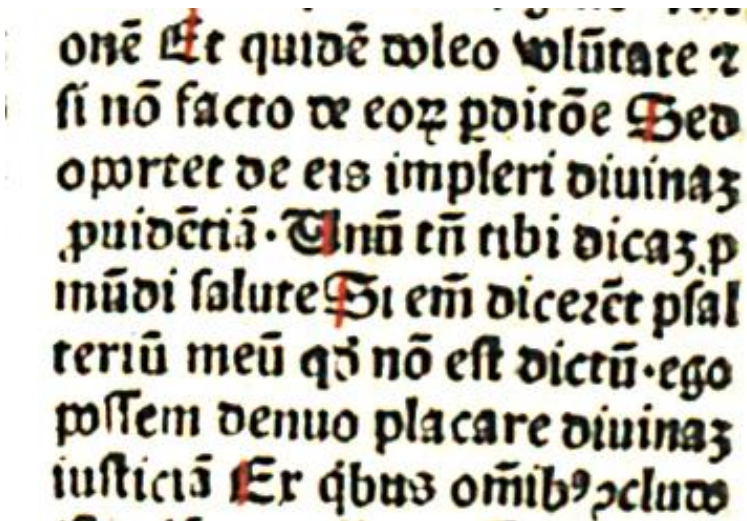 onē Et quidē doleo volūtate ⁊
ſi nō facto de eoꝝ ꝑditōe Sed
oportet de eis impleri diuinaꝫ
ꝓuidētiā. Unū tn̄ tibi dicaꝫ ꝓ
mūdi ſalute Si em̄ diceꝛēt pſal
teriū meū qd̄ nō eſt dictū. ego
poſſem denuo placare diuinaꝫ
iuſticiā Ex q̇bus om̄ibꝰ ꝯcludo